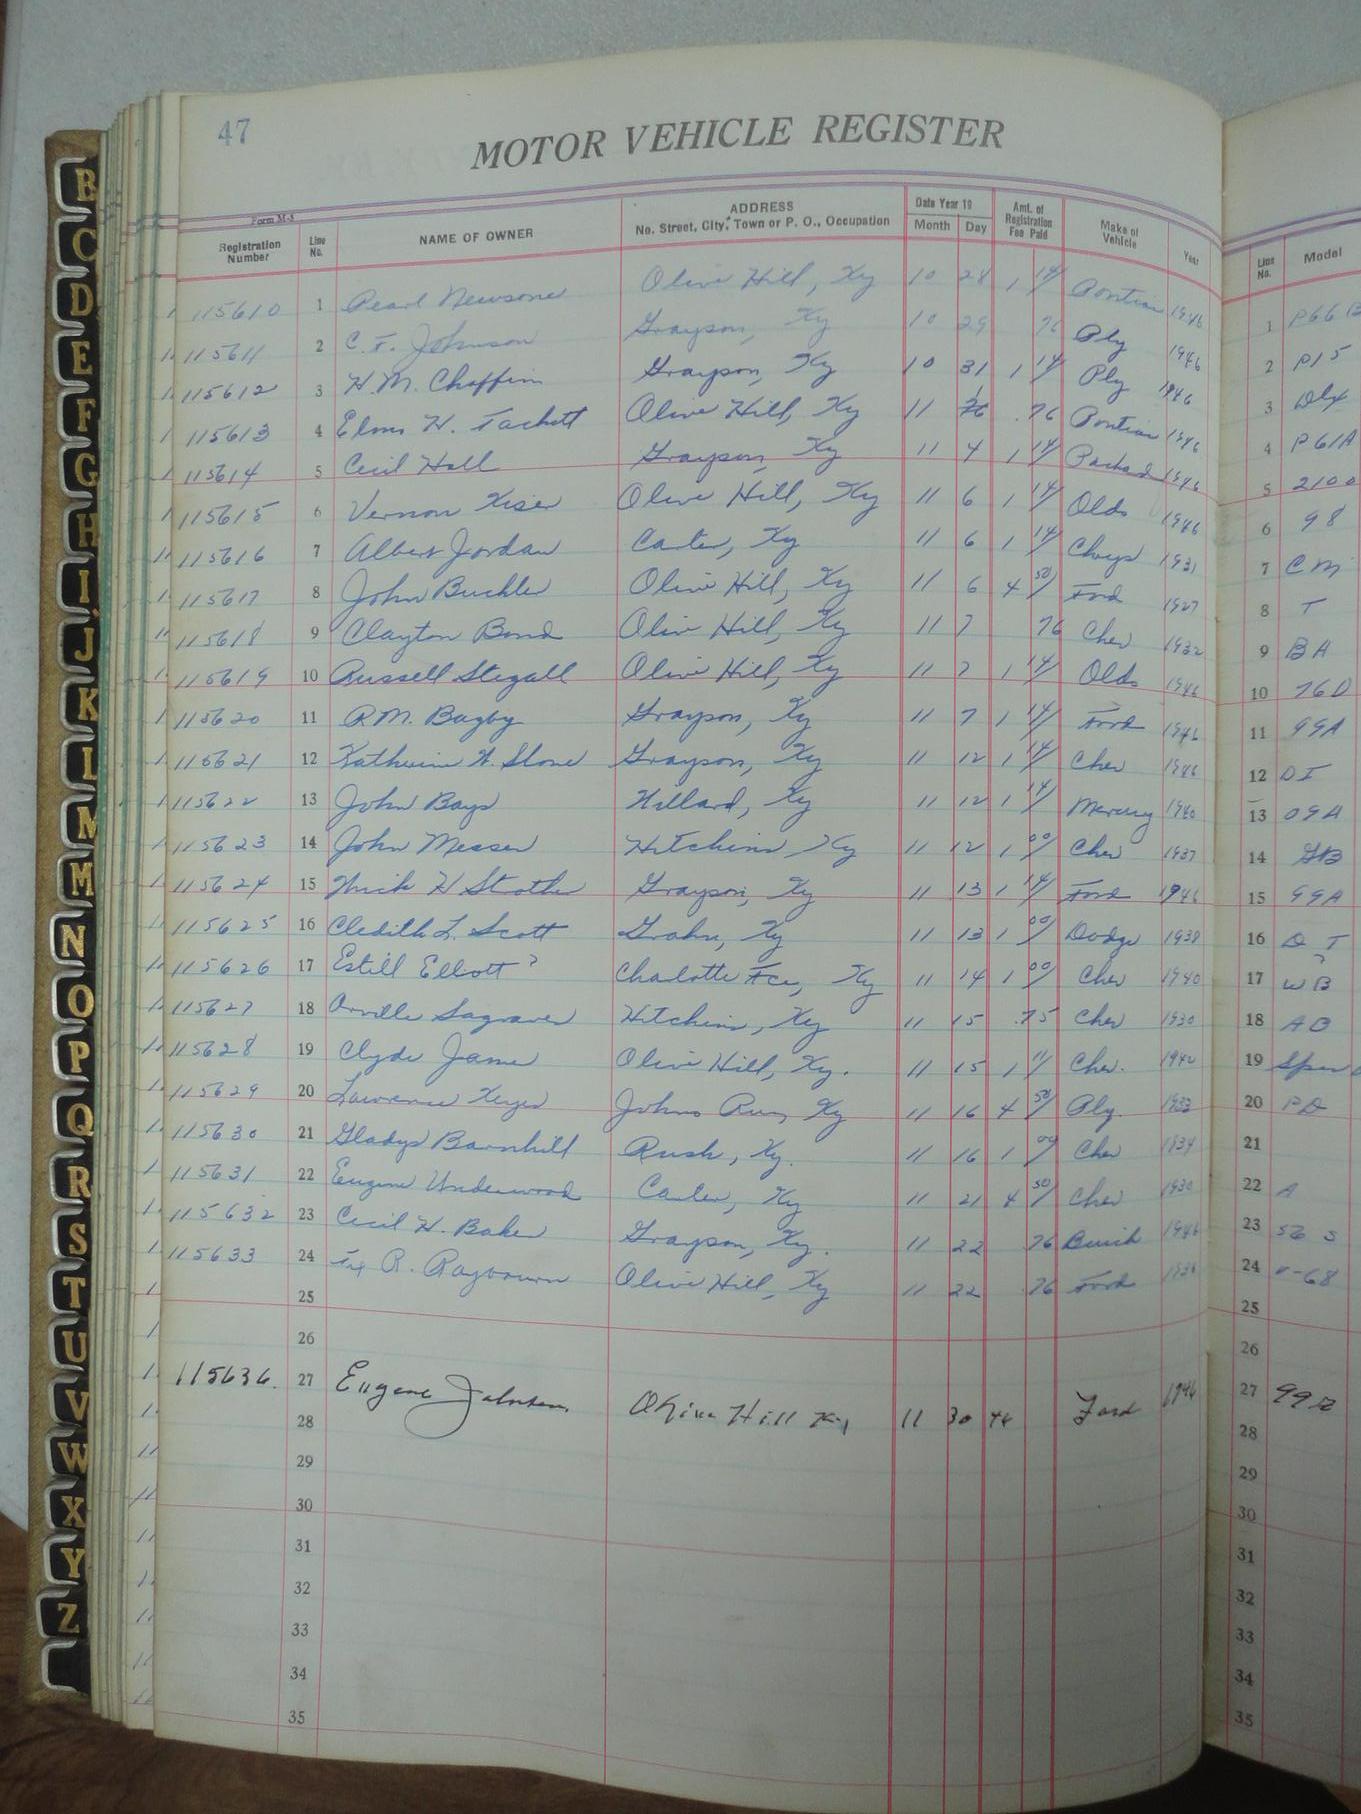 47
MOTOR VEHICLE REGISTER
Form M-5
Registration Number Line No. NAME OF OWNER ADDRESS No. Street, City, Town or P. O., Occupation Date Year 19 Month Day Amt. of Registration Fee Paid Make of Vehicle Year Line No. Model
115610 1 Pearl Newsome Olive Hill, Ky 10 28 1 14 Pontiac 1946 1
115611 2 C. F. Johnson Grayson, Ky 10 29 76 Ply 1946 2 P15
115612 3 H. M. Chaffin Grayson, Ky 10 31 1 14 Ply 1946 3 Dlx
115613 4 H. Tackett Olive Hill, Ky 11 .76 Pontiac 1946 4 P61A
115614 5 Cecil Hall Grayson, Ky 11 4 1 14 Packard 1946 5 2100
115615 6 Vernon Kiser Olive Hill, Ky 11 6 1 14 Olds 1946 6 98
115616 7 Albert Jordan Carter, Ky 11 6 1 14 Chrys 1931 7 CM
115617 8 John Buckler Olive Hill, Ky 11 6 4 50 Ford 1927 8 T
115618 9 Clayton Bond Olive Hill, Ky 11 7 76 Chev 1932 9 BA
115619 10 Russell Stegall Olive Hill, Ky 11 7 1 14 Olds 1946 10 76D
115620 11 R.M. Bagby Grayson, Ky 11 7 1 14 Ford 1946 11 99A
115621 12 Katherine W. Slone Grayson, Ky 11 12 1 14 Chev 1946 12 DI
115622 13 John Bays Willard, Ky 11 12 1 14 Mercury 1940 13 09A
115623 14 John Messer Hitchins Ky 11 12 1 00 Chev 1937 14 GB
115624 15 H Strother Grayson, Ky 11 13 1 14 Ford 1946 15 99A
115625 16 Cledith L. Scott Grahn, Ky 11 13 1 00 Dodge 1938 16 D T
115626 17 Estill Elliott ? Charlotte Fce, Ky 11 14 1 00 Chev 1940 17 WB
115627 18 Orville Sagraves Hitchins, Ky 11 15 .75 Chev 1930 18
115628 19 Clyde James Olive Hill, Ky. 11 15 1 Chev. 1940 19
115629 20 Lawrence Keyes Johns Run, Ky 11 16 4 50 Ply. 1933 20 PD
115630 21 Gladys Barnhill Rush, Ky. 11 16 1 00 Chev 1934 21
115631 22 Eugene Underwood Carter, Ky 11 21 4 50 Chev 1930 22 A
115632 23 Cecil H. Baker Grayson, Ky. 11 22 76 Buick 1946 23 56 S
115633 24 R. Raybourn Olive Hill, Ky 11 22 76 Ford 1936 24
25 25
26 26
115636. 27 Eugene Johnson Olive Hill Ky 11 30 Ford 1946 27
28 28
29 29
30 30
31 31
32 32
33 33
34 34
35 35
B
C
D
E
F
G
H
I
J
K
L
M
M
N
O
P
Q
R
S
T
U
V
W
X
Y
Z